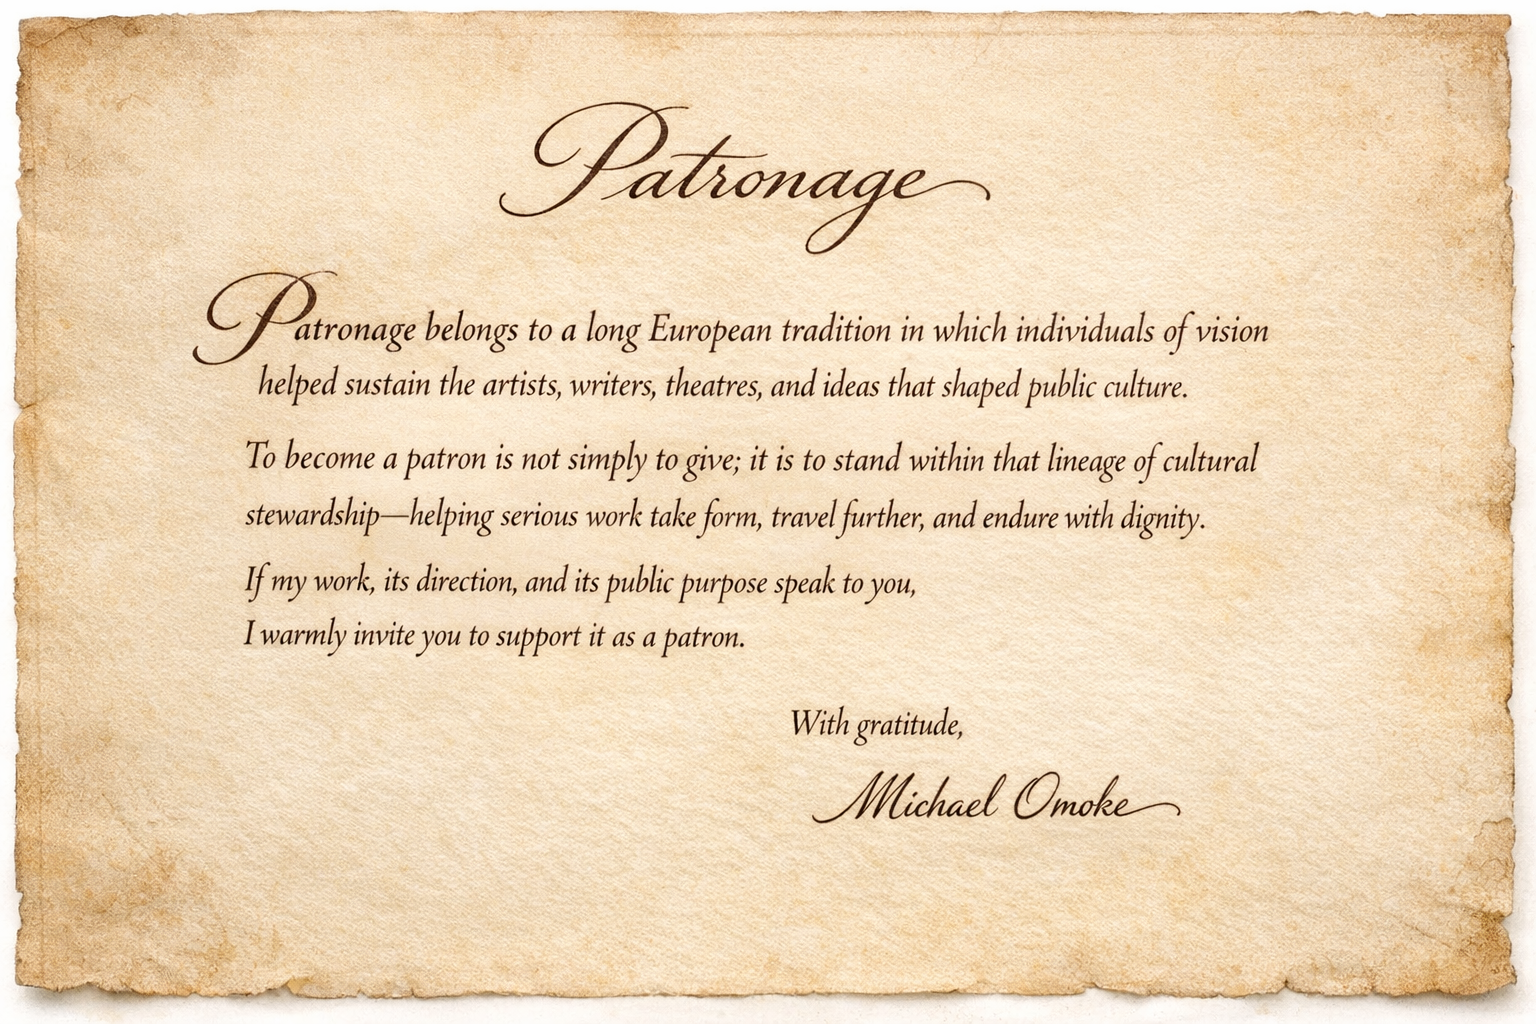 Patronage
Patronage belongs to a long European tradition in which individuals of vision
helped sustain the artists, writers, theatres, and ideas that shaped public culture.
To become a patron is not simply to give; it is to stand within that lineage of cultural
stewardship—helping serious work take form, travel further, and endure with dignity.
If my work, its direction, and its public purpose speak to you,
I warmly invite you to support it as a patron.
With gratitude,
Michael Omoke